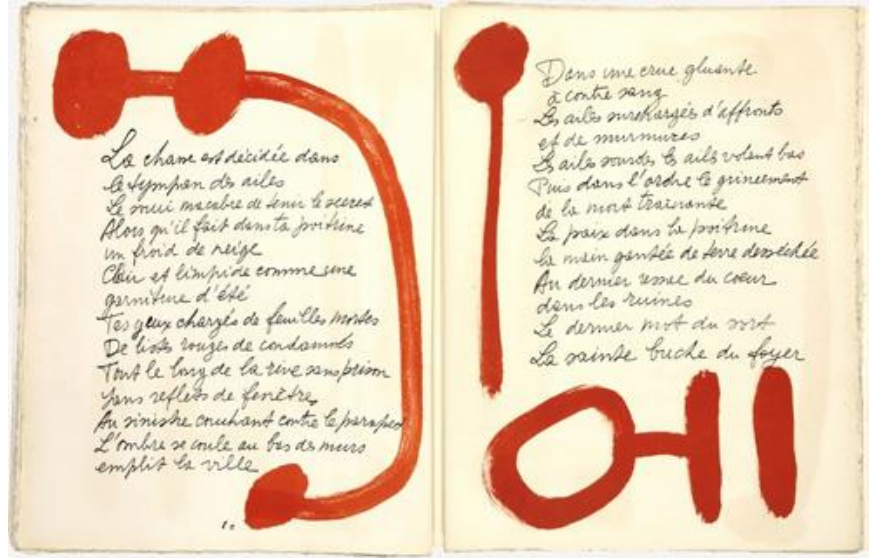 La chance est décidée dans
le tympan des ailes
Le souci macabre de tenir le secret
Alors qu'il fait dans ta poitrine
un froid de neige
Clair et limpide comme une
garniture d'été
Tes yeux chargés de feuilles mortes
De listes rouges de condamnés
Tout le long de la rive sans prison
sans reflets de fenêtre
Au sinistre couchant contre le parapet
L'ombre se coule au bas des murs
emplit la ville
Dans une crue gluante
à contre sang
Les ailes surchargées d'affronts
et de murmures
Les ailes sourdes les ailes volant bas
Puis dans l'ordre le grincement
de la mort traînante
La paix dans la poitrine
la main gantée de terre desséchée
Au dernier ressac du cœur
dans les ruines
Le dernier mot du sort
La sainte buche du foyer